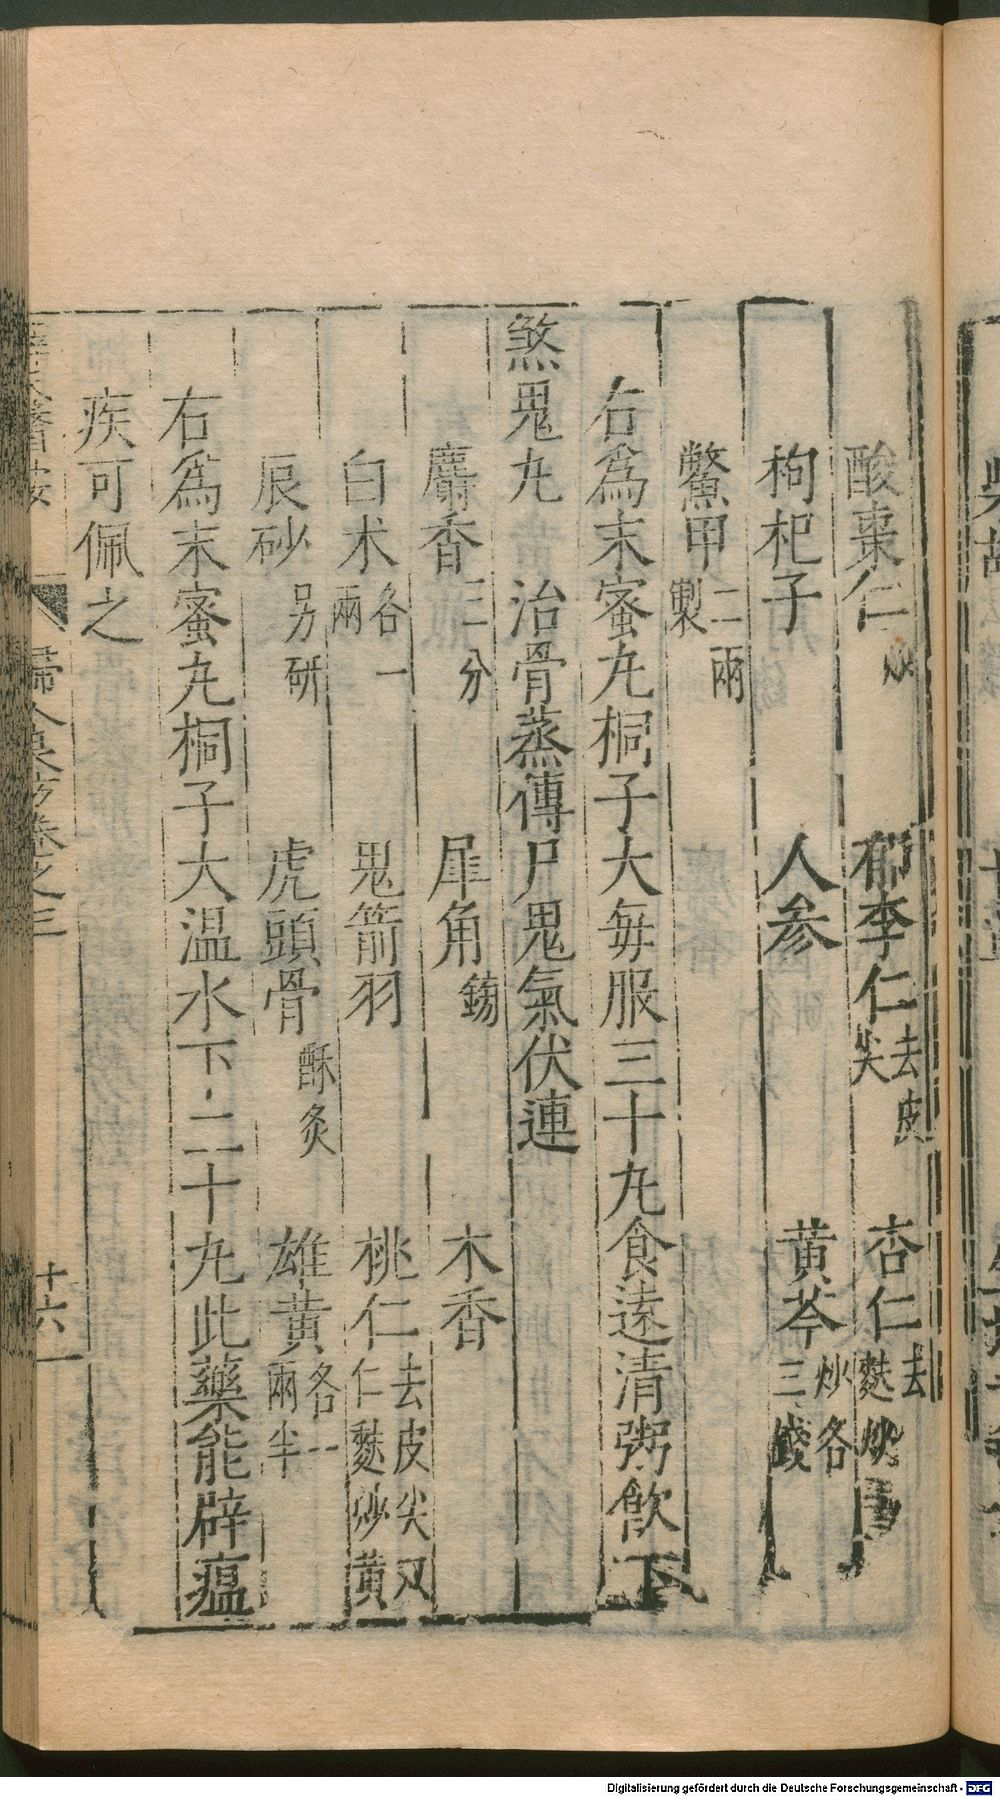 酸棗仁炒　郁李仁去皮尖　杏仁去麩炒
枸杞子　人參　黃芩炒各三錢
鱉甲二兩製
右爲末蜜丸桐子大每服三十丸食遠清粥飲下
煞鬼丸　治骨蒸傳尸鬼氣伏連
麝香三分　犀角鎊　木香
白朮各一兩　鬼箭羽　桃仁去皮尖又仁麩炒黃
辰砂另研　虎頭骨酥炙　雄黃各一兩半
右爲末蜜丸桐子大温水下二十丸此藥能辟瘟
疾可佩之
婦人良方卷之三　十六
Digitalisierung gefördert durch die Deutsche Forschungsgemeinschaft - DFG